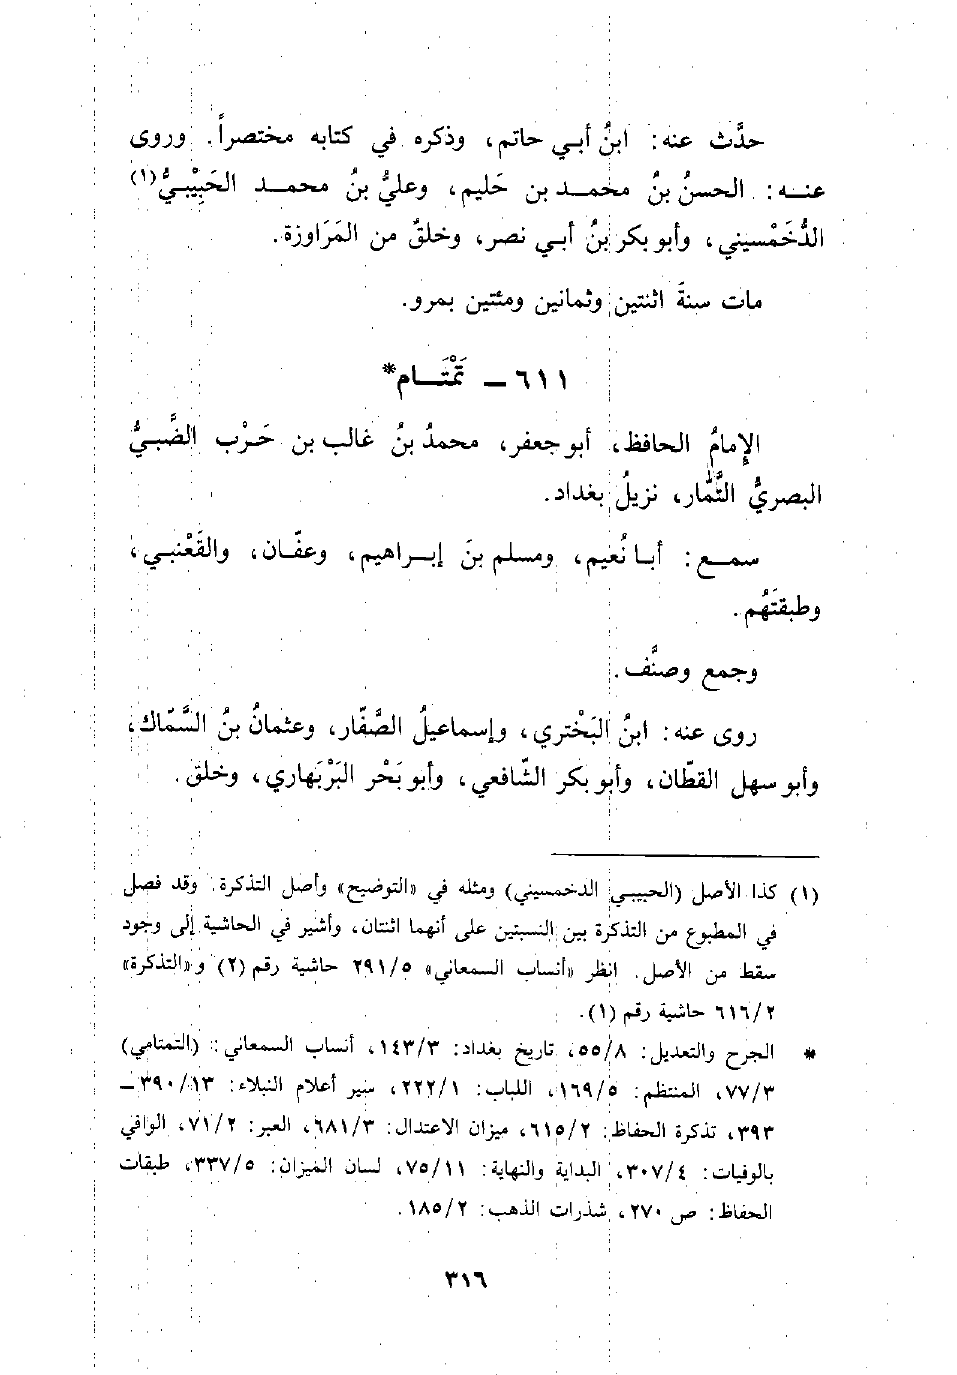 حدَّث عنه: ابنُ أبي حاتم، وذكره في كتابه مختصراً. وروى
عنه: الحسنُ بنُ محمد بن حَليم، وعليُّ بنُ محمد الحَبِيْبيُّ(١)
الدُّخَمْسيني، وأبو بكر بنُ أبي نصر، وخلقٌ من المَرَاوزة.
مات سنةَ اثنتين وثمانين ومئتين بمرو.
٦١١ – تَمْتَام*
الإِمامُ الحافظ، أبو جعفر، محمدُ بنُ غالب بن حَرْب الضَّبيُّ
البصريُّ التَّمَّار، نزيلُ بغداد.
سمع: أبا نُعيم، ومسلم بنَ إبراهيم، وعفّان، والقَعْنبي،
وطبقتَهُم.
وجمع وصنَّف.
روى عنه: ابنُ البَخْتري، وإسماعيلُ الصَّفّار، وعثمانُ بنُ السَّمّاك،
وأبو سهل القطّان، وأبو بكر الشّافعي، وأبو بَحْر البَرْبَهاري، وخلق.
(١) كذا الأصل (الحبيبي الدخمسيني) ومثله في «التوضيح» وأصل التذكرة. وقد فصل
في المطبوع من التذكرة بين النسبتين على أنهما اثنتان، وأشير في الحاشية إلى وجود
سقط من الأصل. انظر «أنساب السمعاني» ٢٩١/٥ حاشية رقم (٢) و«التذكرة»
٦١٦/٢ حاشية رقم (١).
* الجرح والتعديل: ٥٥/٨، تاريخ بغداد: ١٤٣/٣، أنساب السمعاني: (التمتامي)
٧٧/٣، المنتظم: ١٦٩/٥، اللباب: ٢٢٢/١، سير أعلام النبلاء: ٣٩٠/١٣ –
٣٩٣، تذكرة الحفاظ: ٦١٥/٢، ميزان الاعتدال: ٦٨١/٣، العبر: ٧١/٢، الوافي
بالوفيات: ٣٠٧/٤، البداية والنهاية: ٧٥/١١، لسان الميزان: ٣٣٧/٥، طبقات
الحفاظ: ص ٢٧٠، شذرات الذهب: ١٨٥/٢.
٣١٦